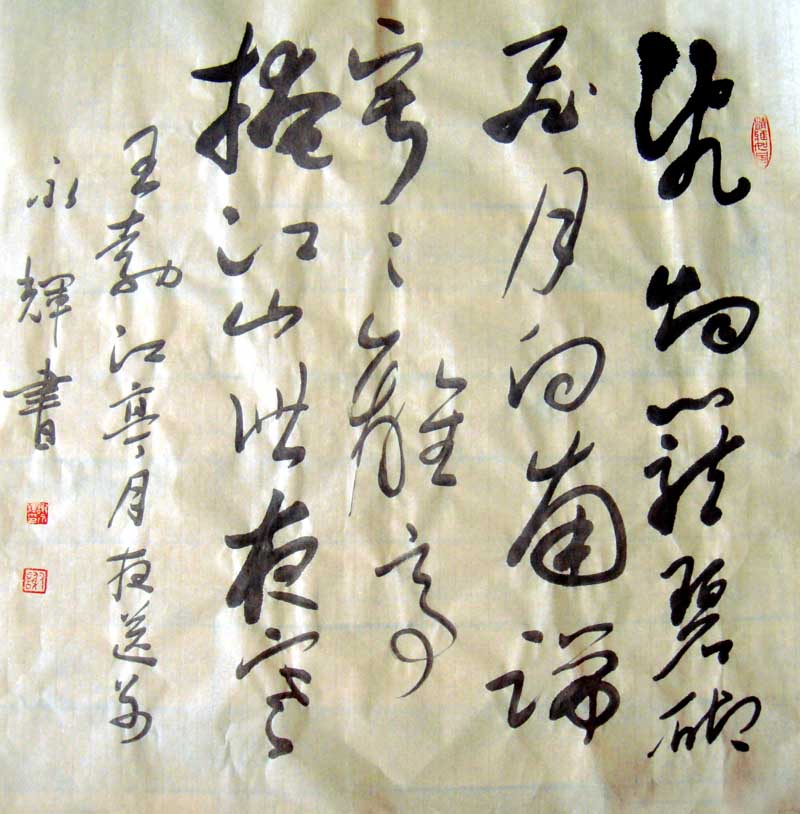 乱烟籠碧砌
飛月向南端
寂〻離亭
掩江山此夜寒
王勃江亭月夜送别
永輝書